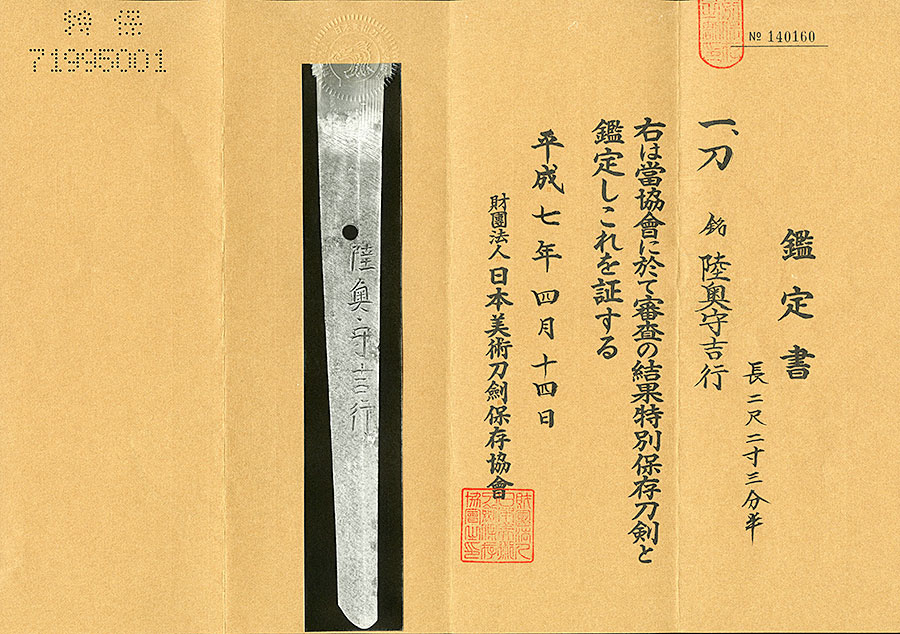 № 140160
鑑定書
長二尺二寸三分半
一、刀 銘 陸奥守吉行
右は當協會に於て審査の結果特別保存刀剣と
鑑定しこれを証する
平成七年四月十四日
財團法人日本美術刀劍保存協會
陸奥守吉行
特保
71995001